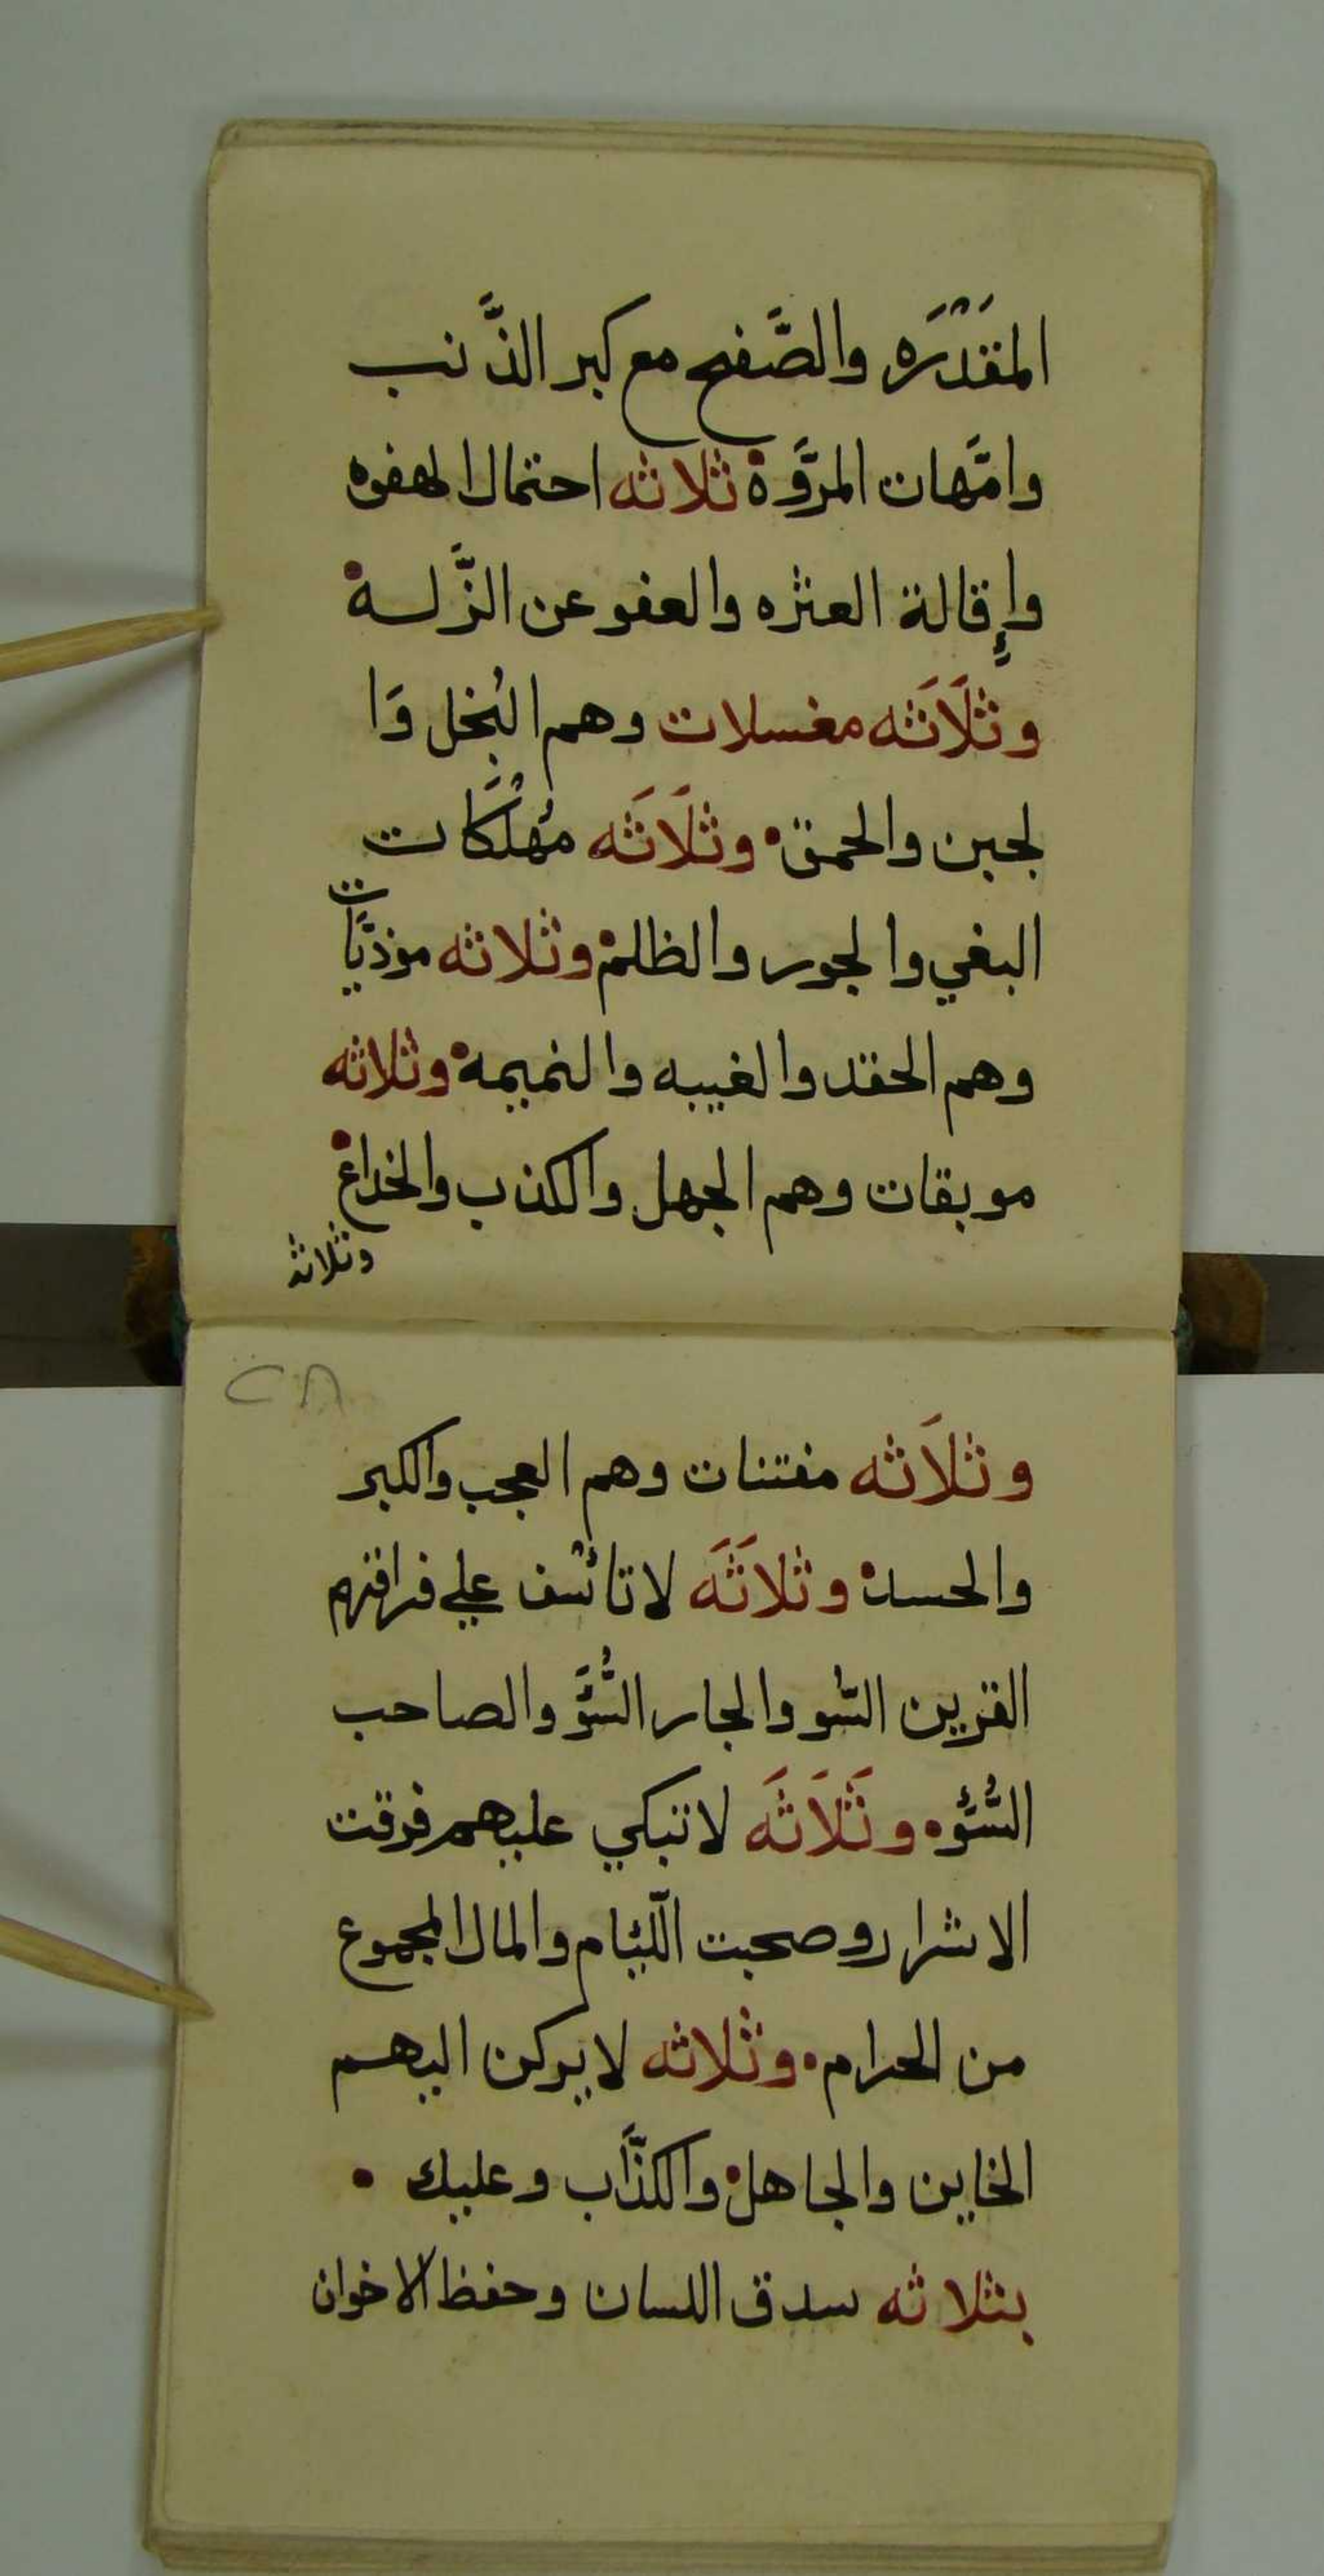 المقَدْرَه والصَّفح مع كبر الذَّنب
وامَّهات المرَّوة ثلاثه احتمال الهفوه
وإِقالة العثره والعفو عن الزَّلــه
وثلَاثَه مغسلات وهم البُخل وَا
لجبن والحمق وثلَاثَه مُهْلَكات
البغي والجور والظلم وثلاثه موذيَّات
وهم الحقد والغيبه والنميمه وثلاثه
موبقات وهم الجهل والكذب والخداع
وثلاثه
٢٨
وثلاَثه مفتنات وهم العجب والكبر
والحسد وثلاثَه لا تائسْف علي فراقهم
القرين السّو والجار السُّؤَّ والصاحب
السُّئَّوه وثَلاَثَه لا تبكي عليهم فرقت
الاشرار وصحبت اللّئيام والمال المجموع
من الحرام وثلاثه لا يركن اليهم
الخاين والجاهل والكذَّاب وعليك
بثلاثه سدق اللسان وحفظ الاخوان